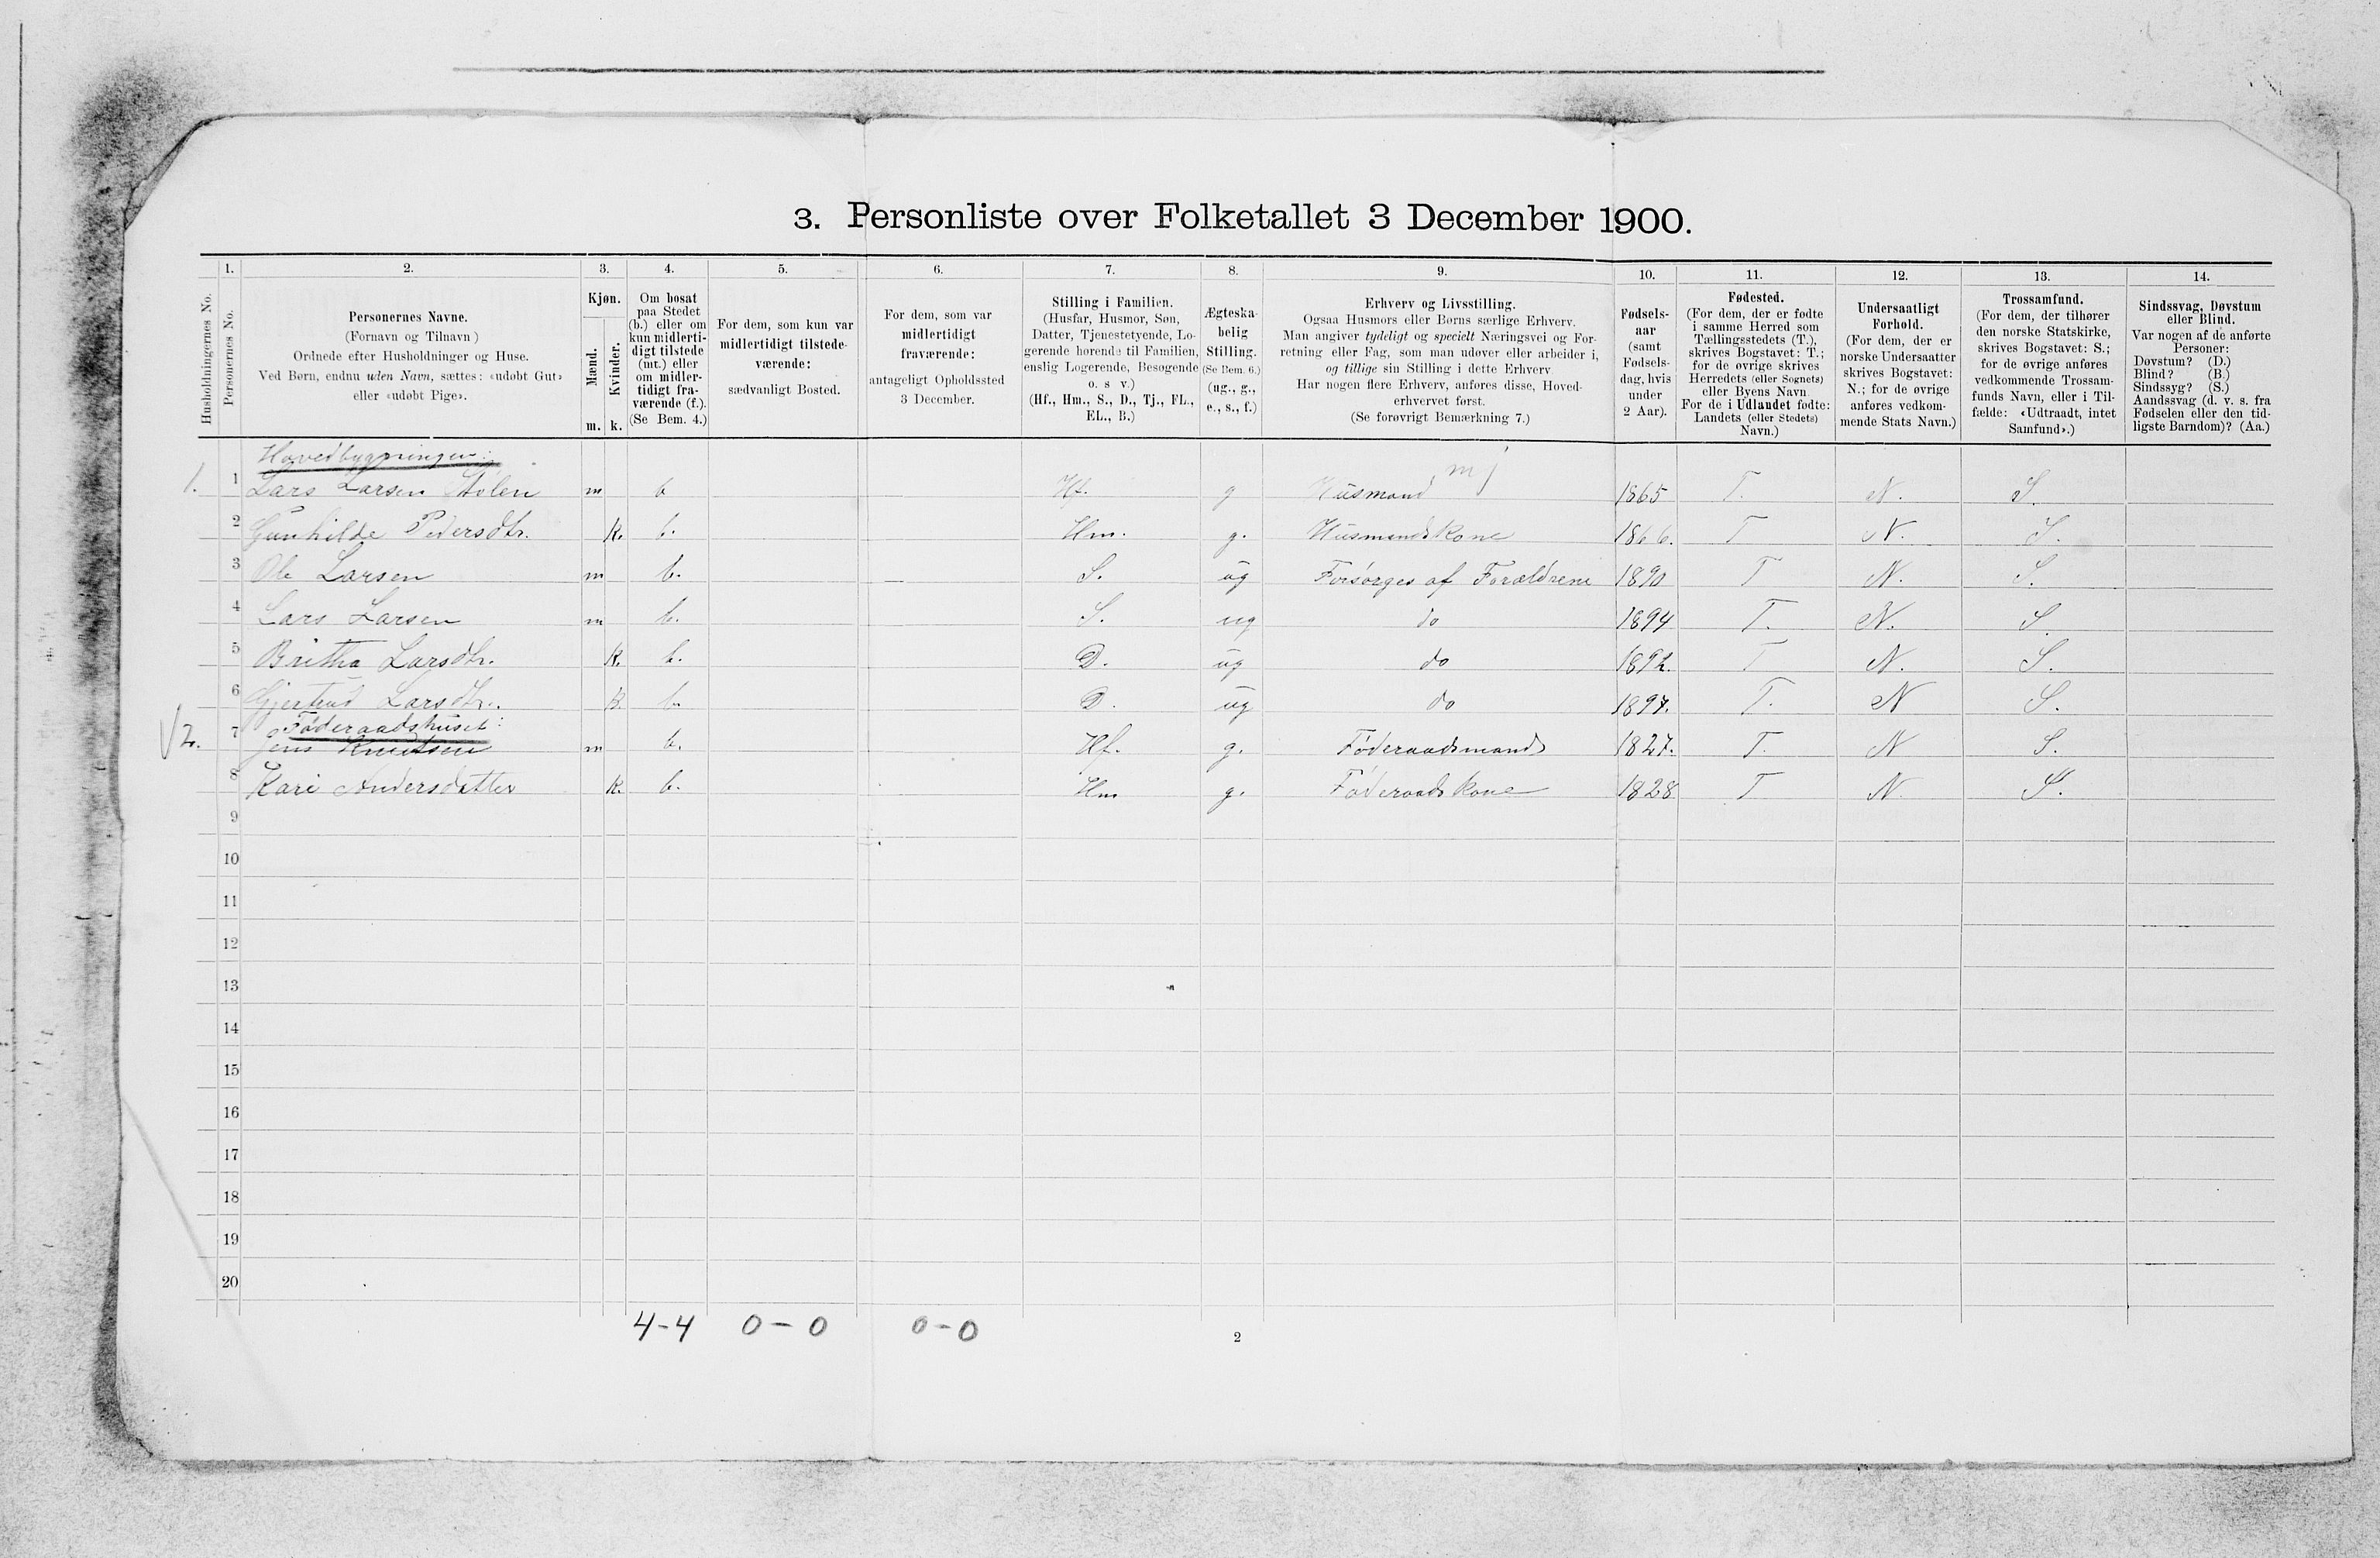 3. Personliste over Folketallet 3 December 1900.
1. 2. 3. 4. 5. 6. 7. 8. 9. 10. 11. 12. 13. 14.
Husholdningernes No.
Personernes No.
Personernes Navne.
(Fornavn og Tilnavn)
Ordnede efter Husholdninger og Huse.
Ved Børn, endnu uden Navn, sættes: «udøbt Gut»
eller «udøbt Pige».
Kjøn.
Mænd.
Kvinder.
m. k.
Om bosat
paa Stedet
(b.) eller om
kun midlerti-
digt tilstede
(mt.) eller
om midler-
tidigt fra-
værende (f.).
(Se Bem. 4.)
For dem, som kun var
midlertidigt tilstede-
værende:
sædvanligt Bosted.
For dem, som var
midlertidigt
fraværende:
antageligt Opholdssted
3 December.
Stilling i Familien.
(Husfar, Husmor, Søn,
Datter, Tjenestetyende, Lo-
gerende hørende til Familien,
enslig Logerende, Besøgende
o. s v.)
(Hf., Hm., S., D., Tj., FL.,
EL., B.)
Ægteska-
belig
Stilling.
(Se Bem. 6.)
(ug., g.,
e., s., f.)
Erhverv og Livsstilling.
Ogsaa Husmors eller Børns særlige Erhverv.
Man angiver tydeligt og specielt Næringsvei og For-
retning eller Fag, som man udøver eller arbeider i,
og tillige sin Stilling i dette Erhverv
Har nogen flere Erhverv, anføres disse, Hoved-
erhvervet først.
(Se forøvrigt Bemærkning 7.)
Fødsels-
aar
(samt
Fødsels-
dag, hvis
under
2 Aar).
Fødested.
(For dem, der er fødte
i samme Herred som
Tællingsstedets (T.),
skrives Bogstavet: T.;
for de øvrige skrives
Herredets (eller Sognets)
eller Byens Navn.
For de i Udlandet fødte:
Landets (eller Stedets)
Navn.)
Undersaatligt
Forhold.
(For dem, der er
norske Undersaatter
skrives Bogstavet:
N.; for de øvrige
anføres vedkom-
mende Stats Navn.)
Trossamfund.
(For dem, der tilhører
den norske Statskirke,
skrives Bogstavet: S.;
for de øvrige anføres
vedkommende Trossam-
funds Navn, eller i Til-
fælde: «Udtraadt, intet
Samfund».)
Sindssvag, Døvstum
eller Blind.
Var nogen af de anførte
Personer:
Døvstum? (D.)
Blind? (B.)
Sindssyg? (S.)
Aandssvag (d. v. s. fra
Fødselen eller den tid-
ligste Barndom)? (Aa.)
Hovedbygningen:
1. 1 Lars Larsen m b Hf. g Husmand mj 1865 T. N. S.
2 Gunhilde Pedersdtr. k. b. Hm. g. Husmandskone 1866. T N. S.
3 Ole Larsen m b. S. ug Forsørges af Forældrene 1890 T N. S.
4 Lars Larsen m b. S. ug do 1894 T. N. S.
5 Britha Larsdtr. k. b. D. ug do 1892. T N. S.
6 Gjertrud Larsdtr. k. b. D. ug do 1897. T. N S.
Føderaadshuset:
√2. 7 Jens Knutsen m b. Hf. g. Føderaadsmand 1827. T. N S.
8 Kari Andersdatter k. b. Hm g. Føderaadskone 1828 T N. S.
9
10
11
12
13
14
15
16
17
18
19
20
4-4 0-0 0-0
2